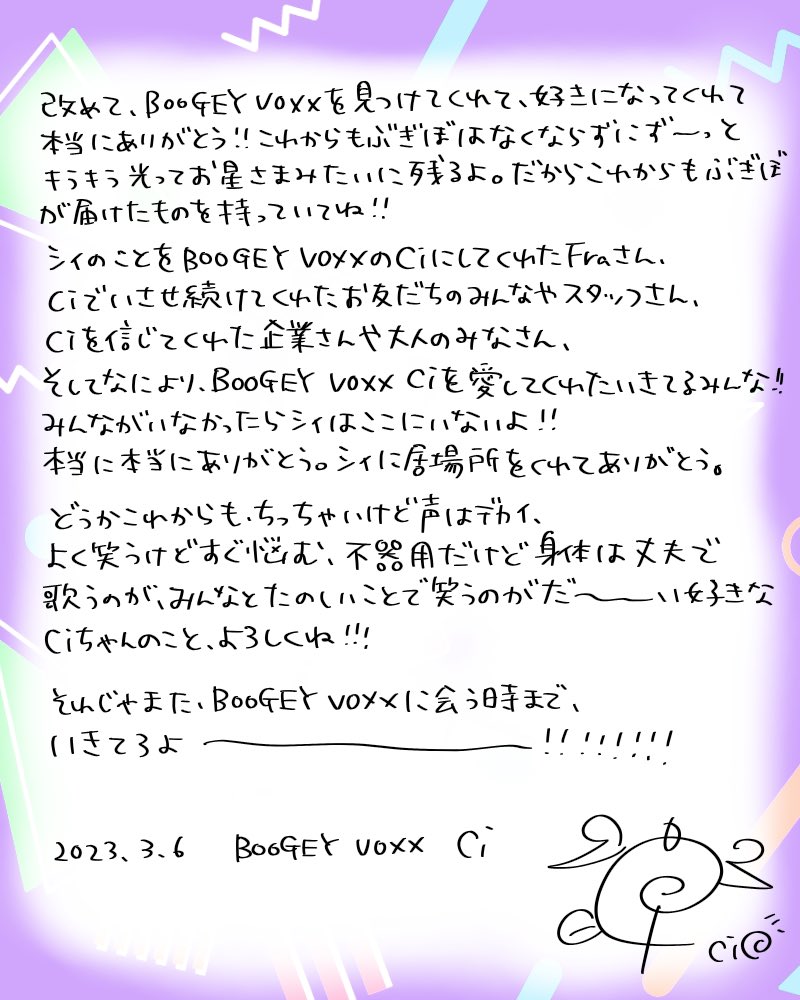 改めて、BOOGEY VOXXを見つけてくれて、好きになってくれて
本当にありがとう!!これからもぶぎぼはなくならずにず〜っと
キラキラ光ってお星さまみたいに残るよ。だからこれからもぶぎぼ
が届けたものを持っていてね!!
シィのことをBOOGEY VOXXのCiにしてくれたFraさん、
Ciでいさせ続けてくれたお友だちのみんなやスタッフさん、
Ciを信じてくれた企業さんや大人のみなさん、
そしてなにより、BOOGEY VOXX Ciを愛してくれたいきてるみんな!!
みんながいなかったらシィはここにいないよ!!
本当に本当にありがとう。シィに居場所をくれてありがとう。
どうかこれからも、ちっちゃいけど声はデカイ、
よく笑うけどすぐ悩む、不器用だけど身体は丈夫で
歌うのが、みんなとたのしいことで笑うのがだ〜〜い好きな
Ciちゃんのこと、よろしくね!!!
それじゃまた、BOOGEY VOXXに会う時まで、
いきてろよ――――!!!!!!!!
2023.3.6 BOOGEY VOXX Ci
Ci@